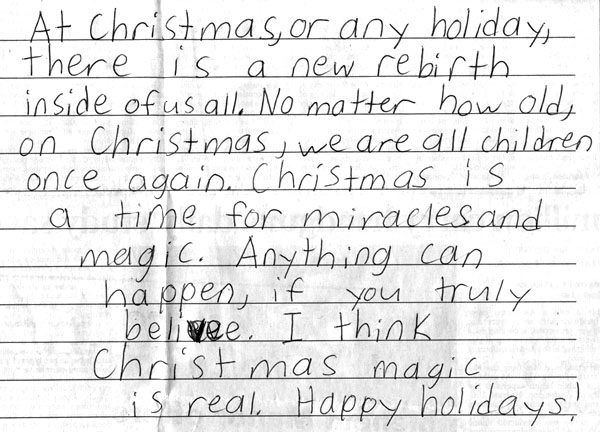 At Christmas, or any holiday,
there is a new rebirth
inside of us all. No matter how old,
on Christmas, we are all children
once again. Christmas is
a time for miracles and
magic. Anything can
happen, if you truly
belivee. I think
Christmas magic
is real. Happy holidays!